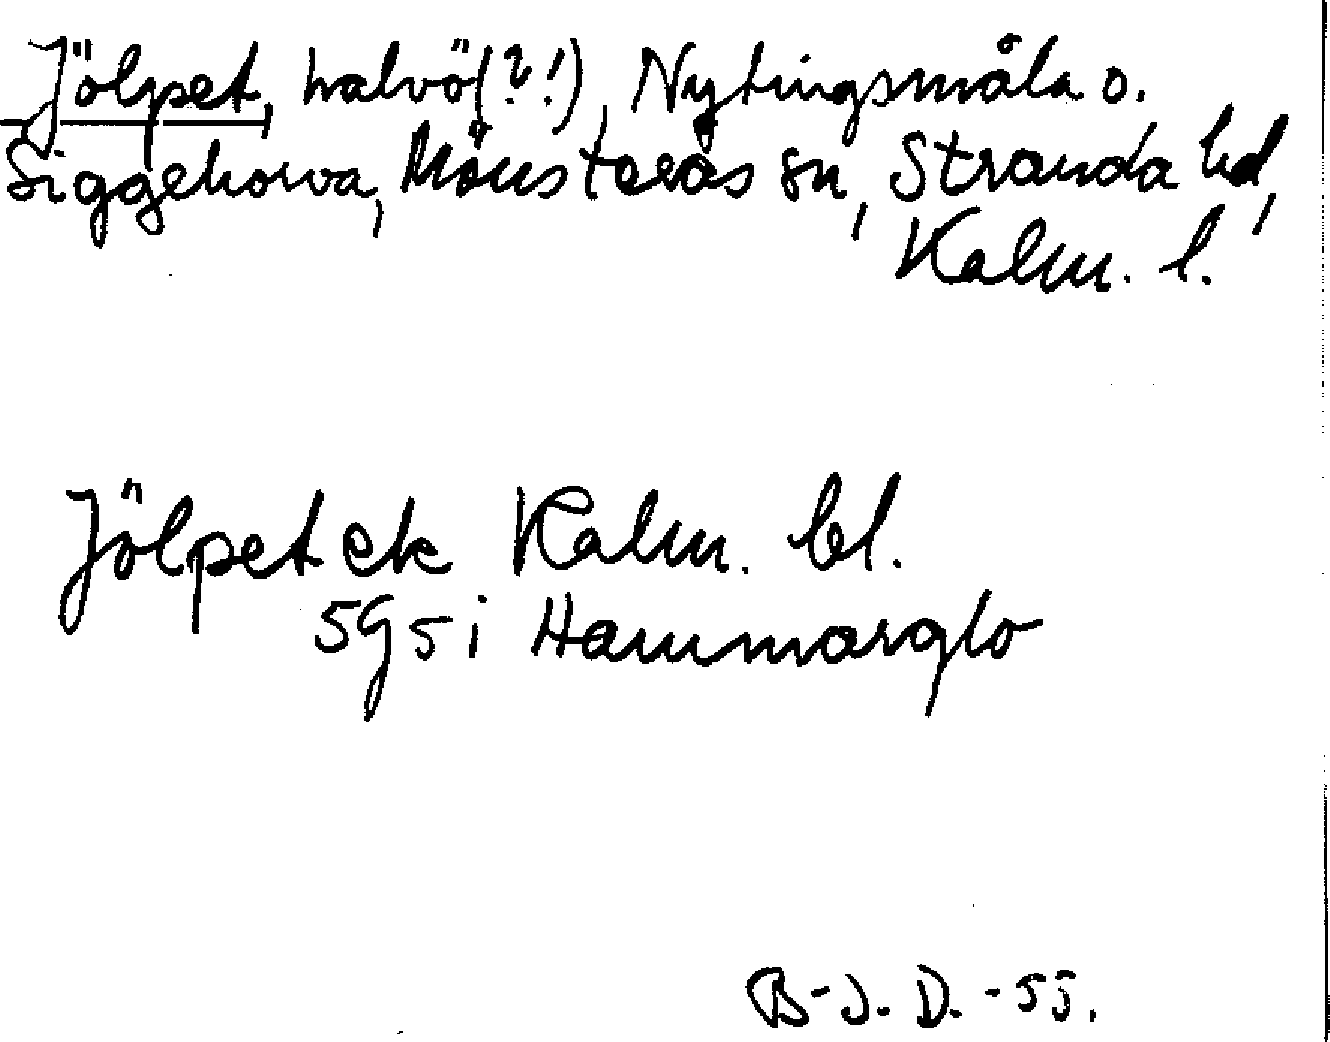 Jölpet, halvö(?!), Nytingsmåla o.
Siggehorva, Mönsterås sn, Stranda hd,
Kalm. l.
Jölpet ek Kalm. bl.
5G5i Hammarglo
B-J. D. -55.